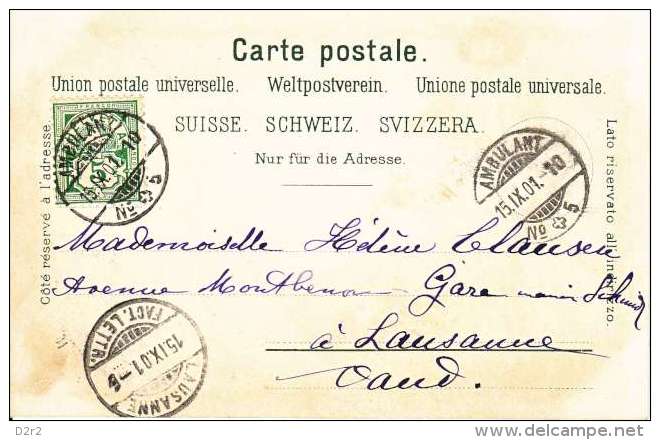 Carte postale.
Union postale universelle. Weltpostverein. Unione postale universale.
SUISSE. SCHWEIZ. SVIZZERA.
Nur für die Adresse.
Côté réservé à l'adresse.
Lato riservato all'indirizzo.
FRANCO
5
AMBULANT
15.IX.01.-10
No 5
AMBULANT
15.IX.01.-10
No 5
Mademoiselle Hélène Clausen
Avenue Montbenon Gare
à Lausanne
Vaud.
LAUSANNE
15.IX.01.-6
FACT. LETTR.
D2r2
delcampe.net